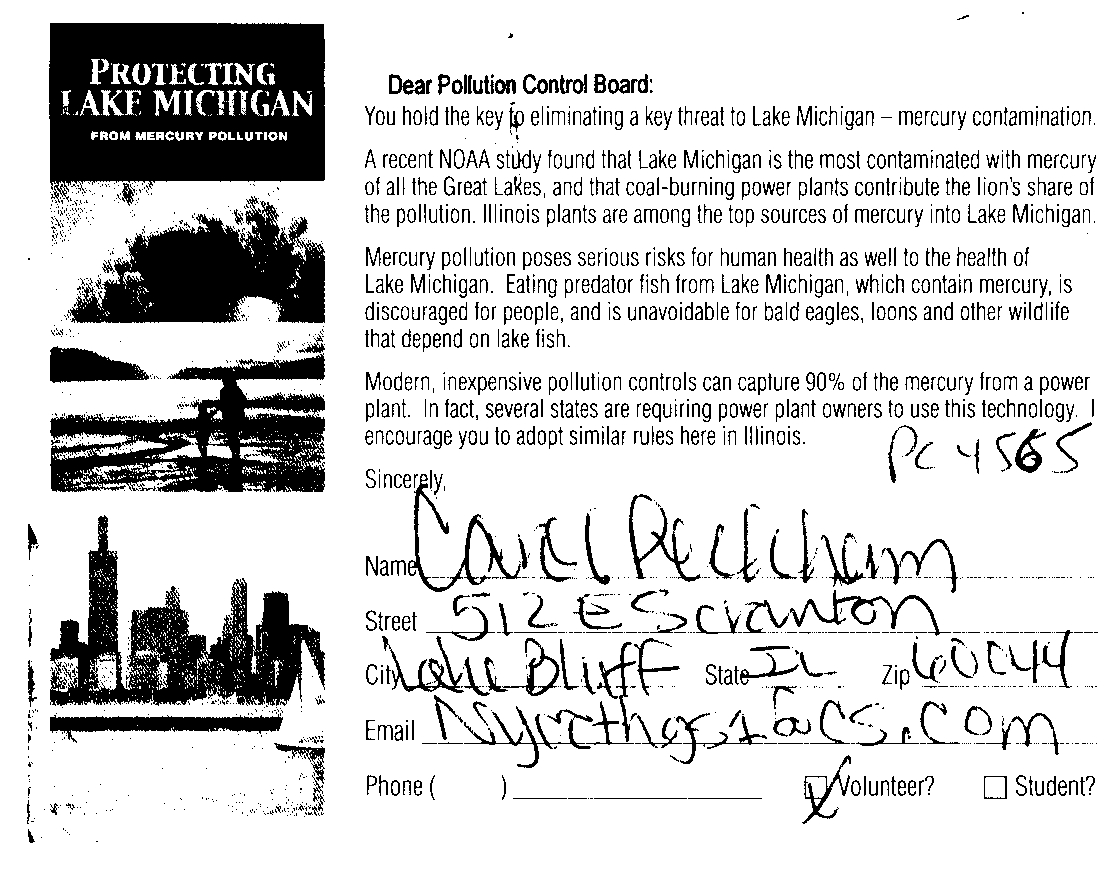 PROTECTING
LAKE MICHIGAN
FROM MERCURY POLLUTION
Dear Pollution Control Board:
You hold the key to eliminating a key threat to Lake Michigan – mercury contamination.
A recent NOAA study found that Lake Michigan is the most contaminated with mercury
of all the Great Lakes, and that coal-burning power plants contribute the lion's share of
the pollution. Illinois plants are among the top sources of mercury into Lake Michigan.
Mercury pollution poses serious risks for human health as well to the health of
Lake Michigan. Eating predator fish from Lake Michigan, which contain mercury, is
discouraged for people, and is unavoidable for bald eagles, loons and other wildlife
that depend on lake fish.
Modern, inexpensive pollution controls can capture 90% of the mercury from a power
plant. In fact, several states are requiring power plant owners to use this technology. I
encourage you to adopt similar rules here in Illinois.
PC 4565
Sincerely,
Name Carol Peckham
Street 512 E Scranton
City Lake Bluff State IL Zip 60044
Email
Phone ( )
Volunteer? Student?